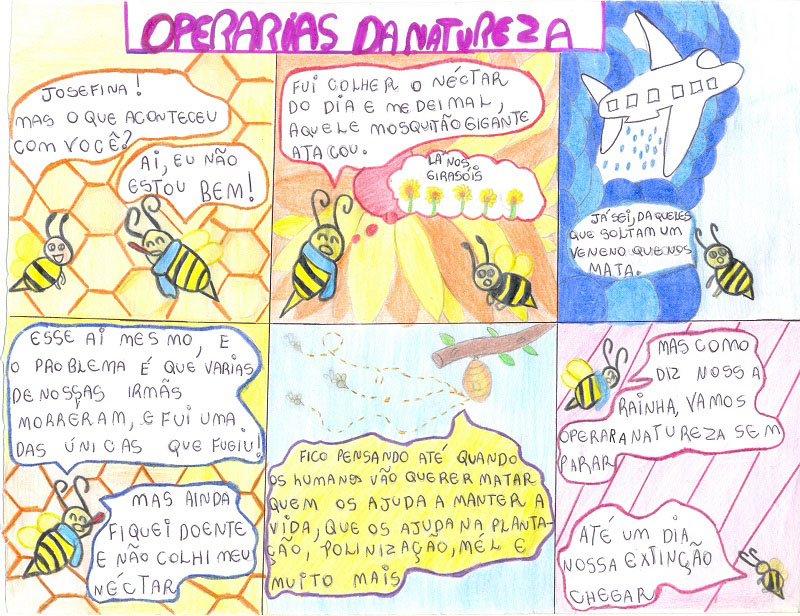 OPERARIAS DA NATUREZA
JOSEFINA!
MAS O QUE ACONTECEU
COM VOCÊ?
AI, EU NÃO
ESTOU BEM!
FUI COLHER O NÉCTAR
DO DIA E ME DEI MAL,
AQUELE MOSQUITÃO GIGANTE
ATACOU.
LÁ NOS
GIRASÓIS
JÁ SEI, DAQUELES
QUE SOLTAM UM
VENENO QUE NOS
MATA.
ESSE AI MESMO, E
O PROBLEMA É QUE VARIAS
DE NOSSAS IRMÃS
MORRERAM, E FUI UMA
DAS ÚNICAS QUE FUGIU!
MAS AINDA
FIQUEI DOENTE
E NÃO COLHI MEU
NÉCTAR
FICO PENSANDO ATÉ QUANDO
OS HUMANOS VÃO QUERER MATAR
QUEM OS AJUDA A MANTER A
VIDA, QUE OS AJUDA NA PLANTA-
ÇÃO, POLINIZAÇÃO, MÉL E
MUITO MAIS
MAS COMO
DIZ NOSSA
RAINHA, VAMOS
OPERAR A NATUREZA SEM
PARAR
ATÉ UM DIA
NOSSA EXTINÇÃO
CHEGAR